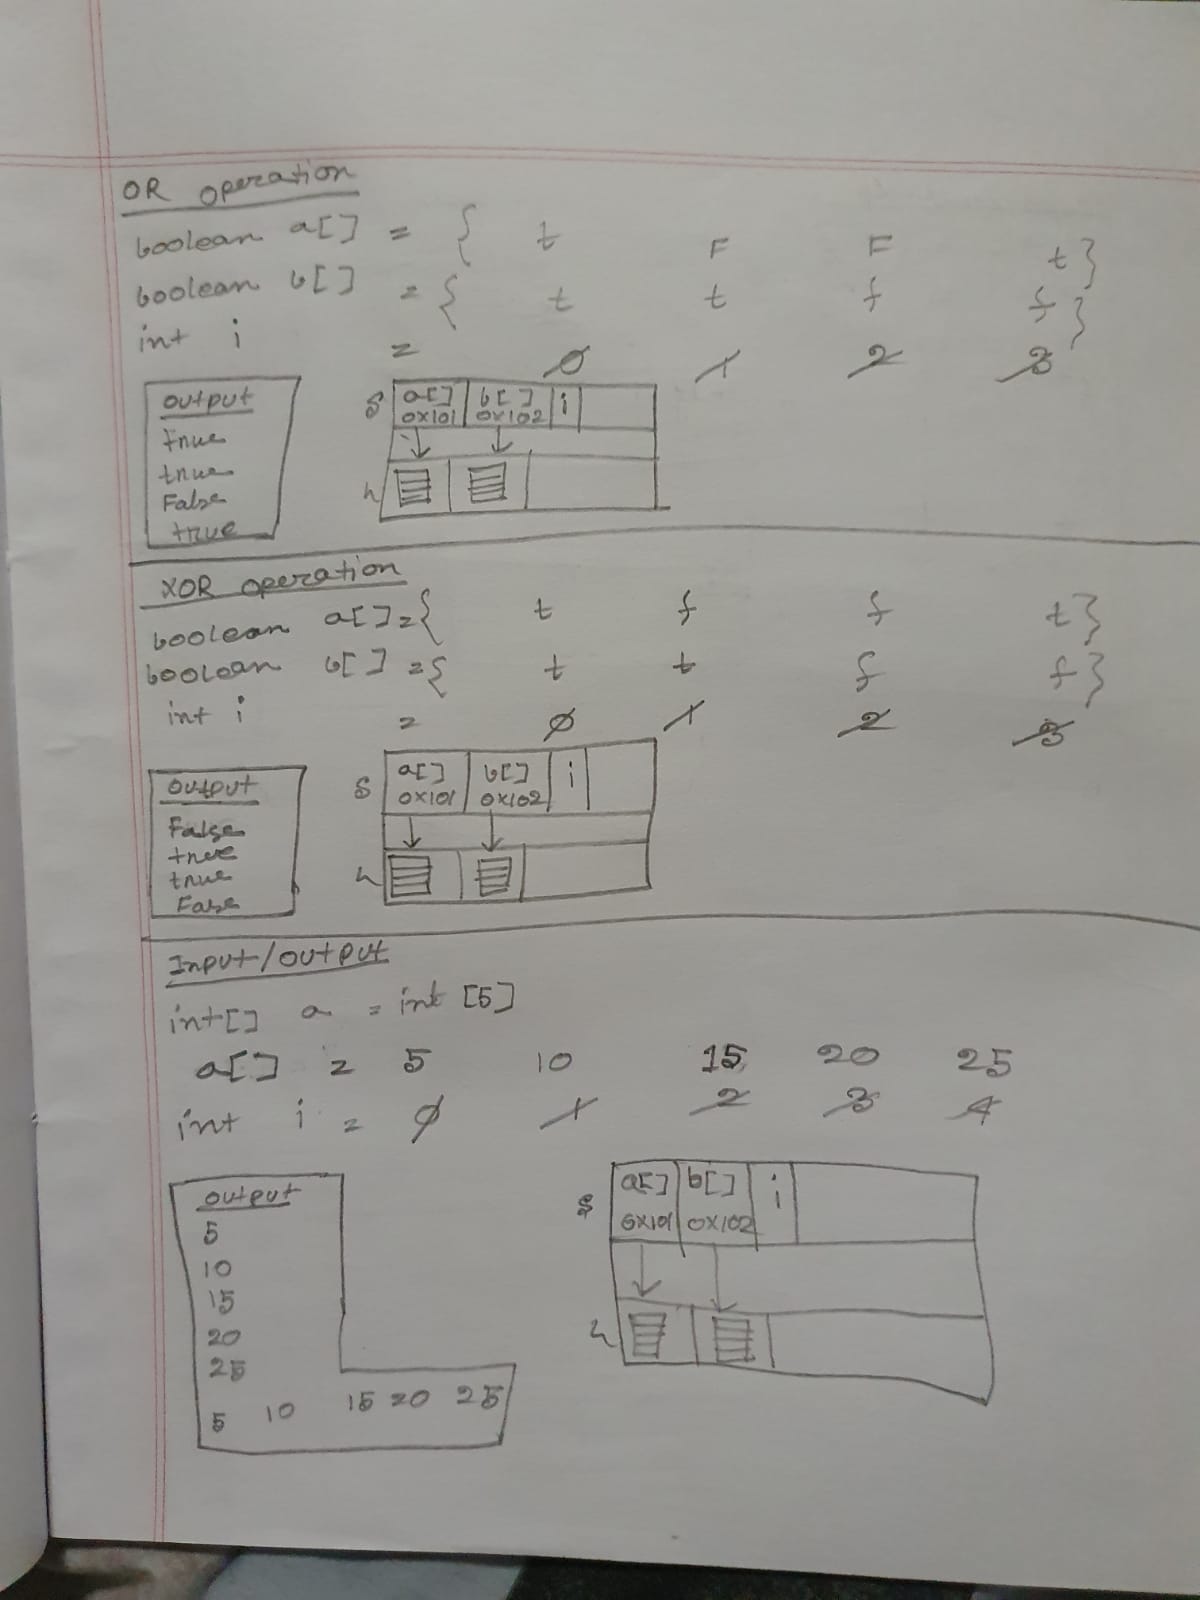 OR operation
boolean a[] = { t F F t}
boolean b[] = { t t f f }
int i = 0 1 2 3
output
true
true
False
true
S a[] b[] i
0x101 0x102
h
XOR operation
boolean a[] = { t f f t}
boolean b[] = { t t f f}
int i = 0 1 2 3
output
False
true
true
False
S a[] b[] i
0x101 0x102
h
Input/output
int[] a = int [5]
a[] = 5 10 15 20 25
int i = 0 1 2 3 4
output
5
10
15
20
25
5 10 15 20 25
S a[] b[] i
0x101 0x102
h